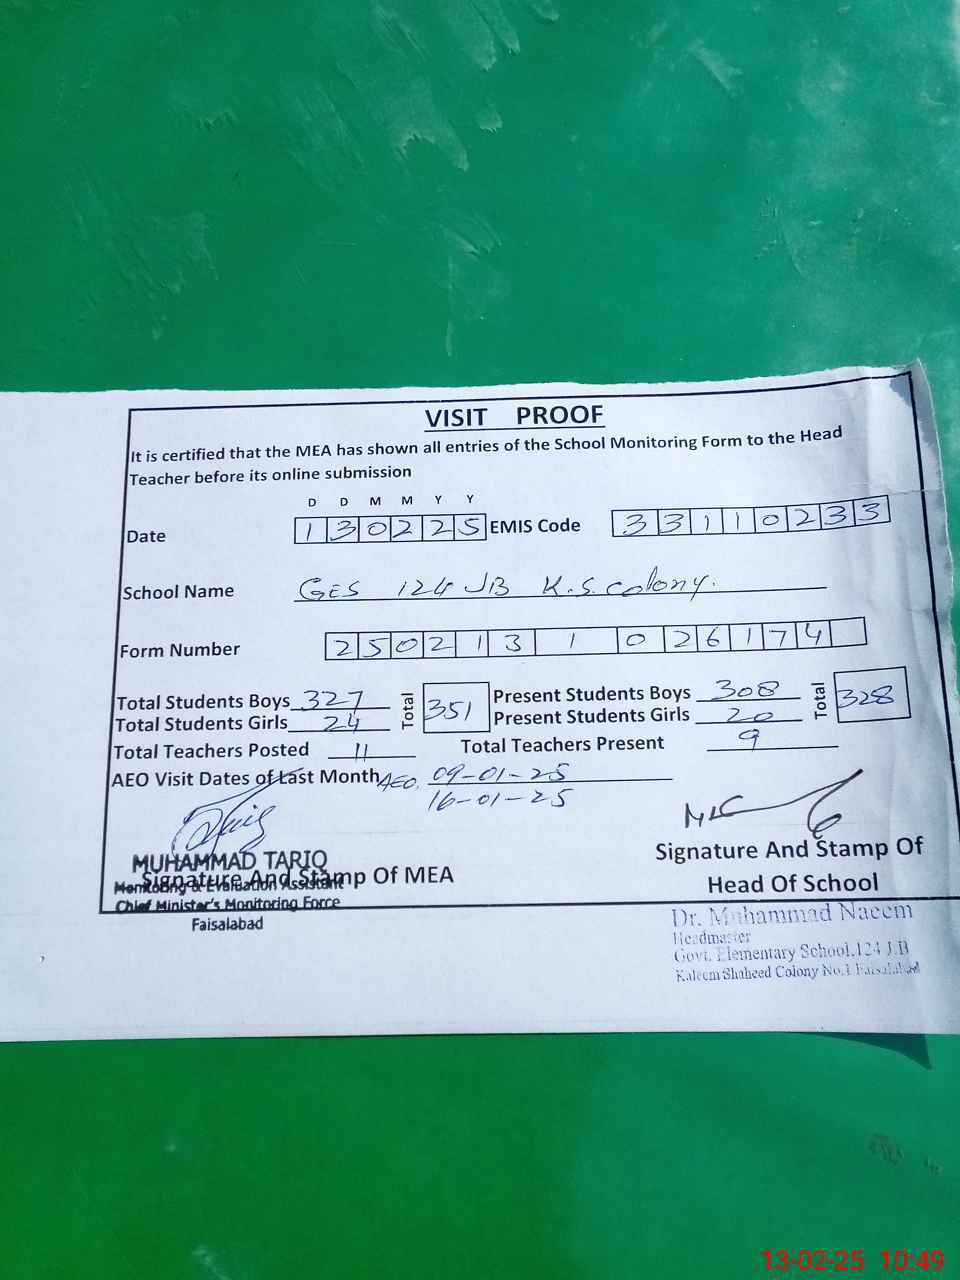 VISIT PROOF
It is certified that the MEA has shown all entries of the School Monitoring Form to the Head
Teacher before its online submission
D D M M Y Y
Date 1 3 0 2 2 5 EMIS Code 3 3 1 1 0 2 3 3
School Name GES 124 JB K.S. colony.
Form Number 2 5 0 2 1 3 1 0 2 6 1 7 4
Total Students Boys 327 Total 351 Present Students Boys 308 Total 328
Total Students Girls 24 Present Students Girls 20
Total Teachers Posted 11 Total Teachers Present 9
AEO Visit Dates of Last Month AEO. 09-01-25
16-01-25
MUHAMMAD TARIQ
Signature And Stamp Of MEA
Monitoring & Evaluation Assistant
Chief Minister's Monitoring Force
Faisalabad
Signature And Stamp Of
Head Of School
Dr. Muhammad Naeem
Headmaster
Govt. Elementary School,124 J.B
Kaleem Shaheed Colony No.1 Faisalabad
13-02-25 10:49